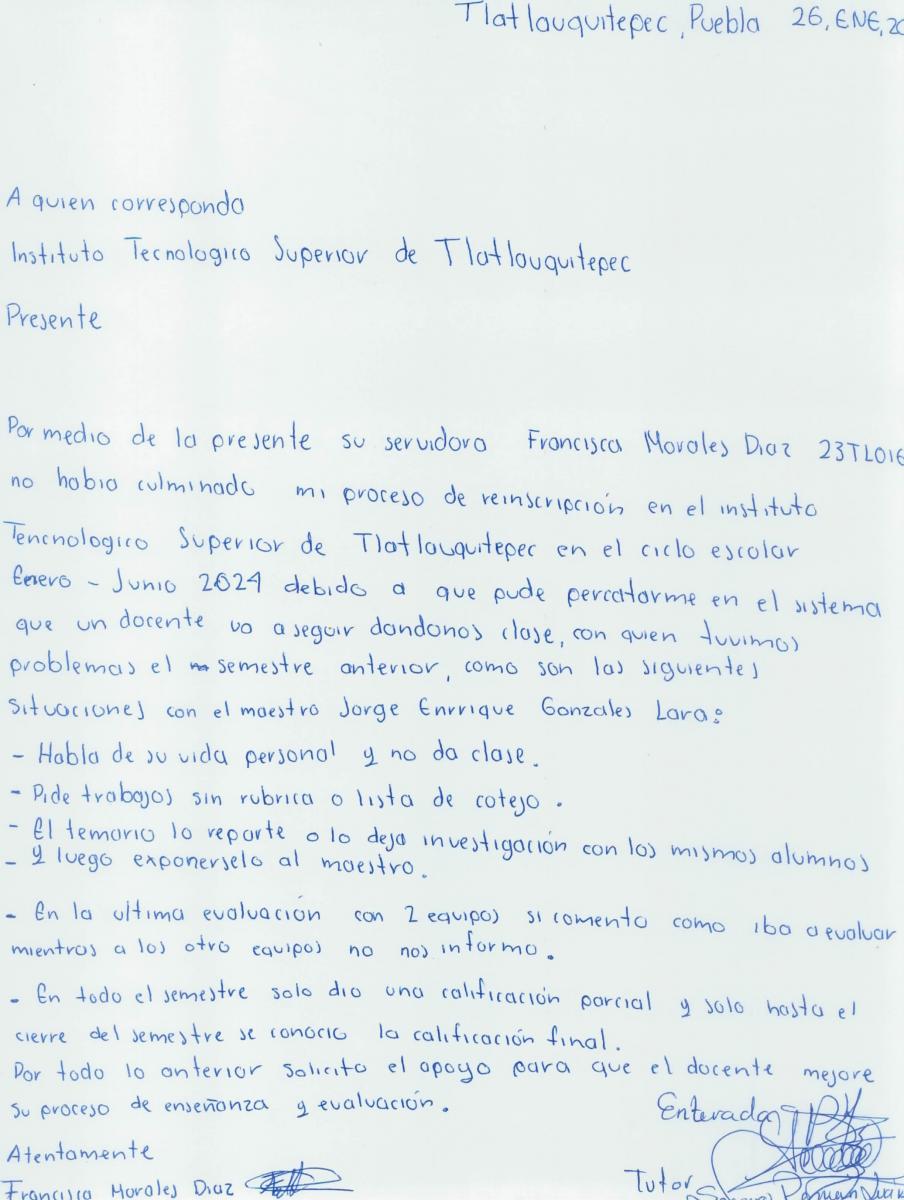 Tlatlauquitepec, Puebla 26, ENE, 20
A quien corresponda
Instituto Tecnologico Superior de Tlatlauquitepec
Presente
Por medio de la presente su servidora Francisca Morales Diaz 23TL016
no habia culminado mi proceso de reinscripción en el instituto
Tencnologico Superior de Tlatlauquitepec en el ciclo escolar
Enero - Junio 2024 debido a que pude percatarme en el sistema
que un docente va a seguir dandonos clase, con quien tuvimos
problemas el semestre anterior, como son las siguientes
situaciones con el maestro Jorge Enrrique Gonzales Lara:
- Habla de su vida personal y no da clase.
- Pide trabajos sin rubrica o lista de cotejo.
- El temario lo reporte o lo deja investigación con los mismos alumnos
- y luego exponerselo al maestro.
- En la ultima evaluación con 2 equipos si comento como iba a evaluar
mientras a los otro equipos no nos informo.
- En todo el semestre solo dio una calificación parcial y solo hasta el
cierre del semestre se conocio la calificación final.
Por todo lo anterior solicito el apoyo para que el docente mejore
su proceso de enseñanza y evaluación.
Enterada
Atentamente
Francisca Morales Diaz
Tutor